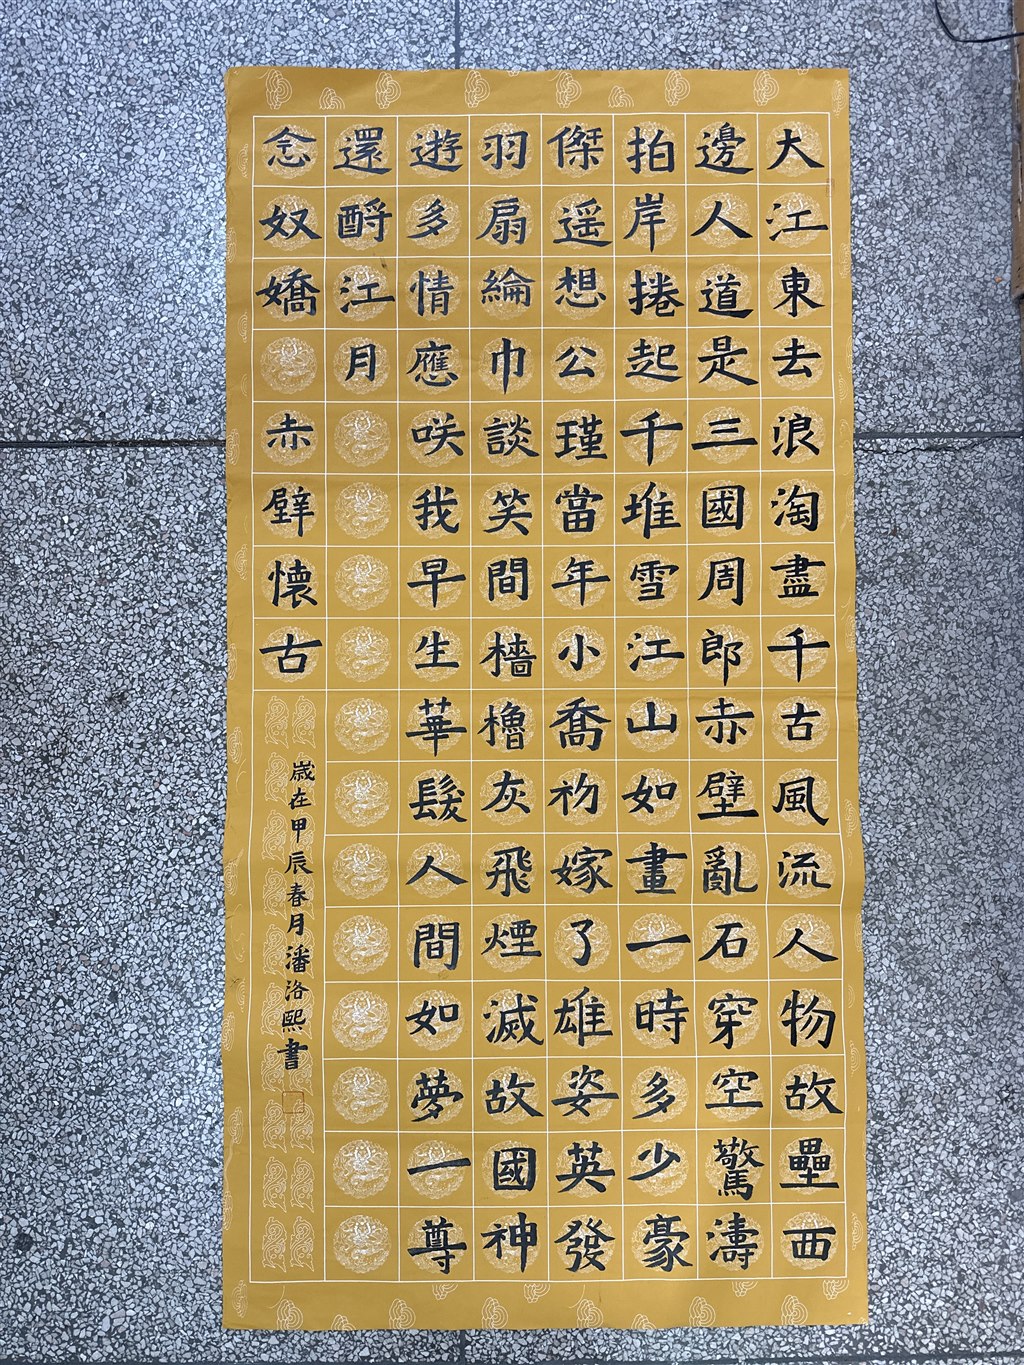 大江東去浪淘盡千古風流人物故壘西
邊人道是三國周郎赤壁亂石穿空驚濤
拍岸捲起千堆雪江山如畫一時多少豪
傑遥想公瑾當年小喬初嫁了雄姿英發
羽扇綸巾談笑間檣櫓灰飛煙滅故國神
遊多情應咲我早生華髮人間如夢一尊
還酹江月
念奴嬌 赤壁懐古
歲在甲辰春月潘洛熙書